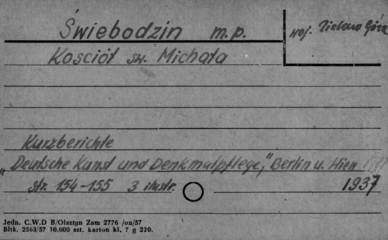 Świebodzin m.p.
woj. Zielona Góra
Kościół św. Michała
Kurzberichte
„Deutsche Kunst und Denkmalpflege," Berlin u. Wien
str. 154-155 3 ilustr. 1937
Jedn. C.W.D B/Olsztyn Zam 2776 /on/57
Bltk. 2563/57 10.000 szt. karton kl. 7 g 220.